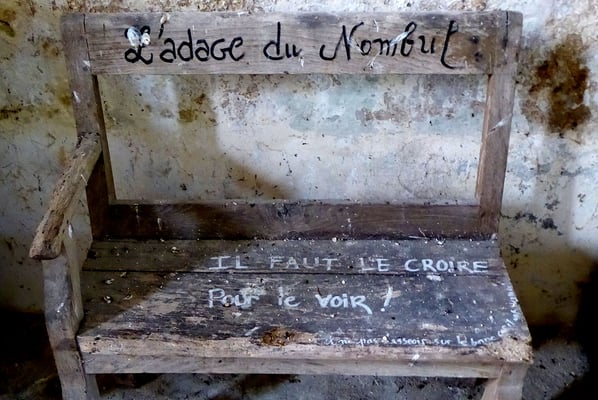 L'adage du Nombut :
IL FAUT LE CROIRE
Pour le voir !
et ne pas s'asseoir sur le banc